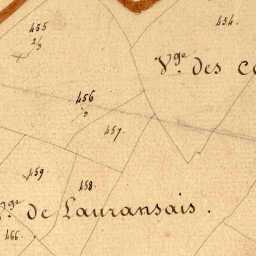 455
434.
Vge. des
456
457.
459
458.
Vge. de Lauransais.
466.